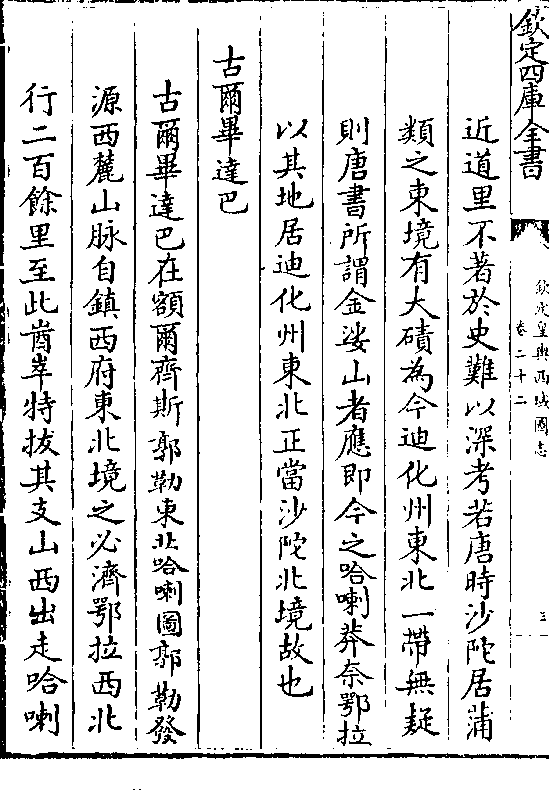 欽定四庫全書
欽定皇輿西域圖志
卷二十二
三
近道里不著於史難以深考若唐時沙陀居蒲
類之東境有大磧為今迪化州東北一帶無疑
則唐書所謂金娑山者應即今之哈喇莽奈鄂拉
以其地居迪化州東北正當沙陀北境故也
古爾畢達巴
古爾畢達巴在額爾齊斯郭勒東北哈喇圖郭勒發
源西麓山脉自鎮西府東北境之必濟鄂拉西北
行二百餘里至此崷崒特拔其支山西出走哈喇